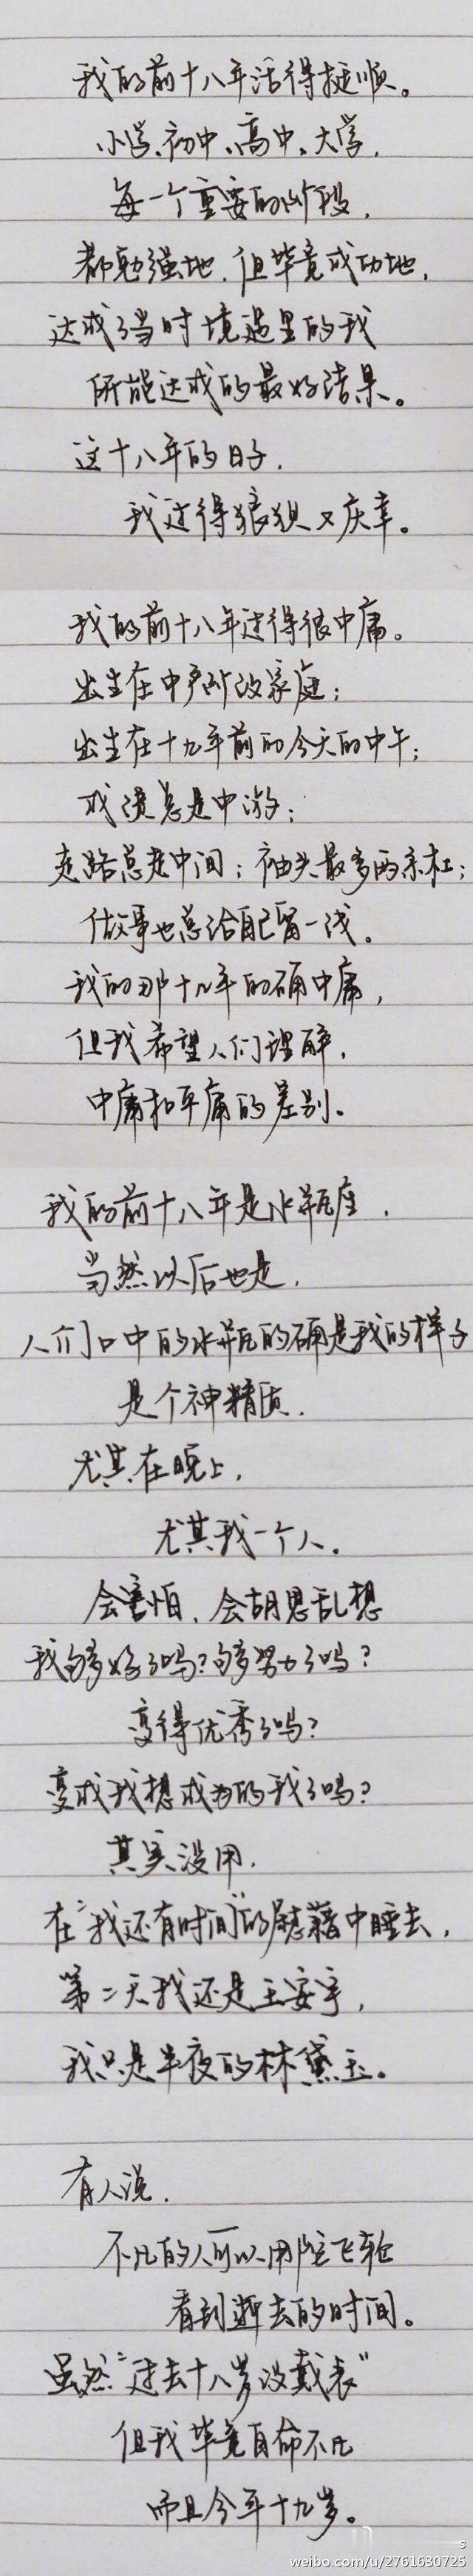 我的前十八年活得挺顺。
小学、初中、高中、大学,
每一个重要的阶段,
都勉强地,但毕竟成功地,
达成了当时境遇里的我
所能达成的最好结果。
这十八年的日子,
我过得狼狈又庆幸。
我的前十八年过得很中庸。
出生在中产阶级家庭;
出生在十九年前的今天的中午;
成绩总是中游;
走路总走中间;袖头最多两条杠;
做事也总给自己留一线。
我的那十八年的确中庸,
但我希望人们理解,
中庸和平庸的差别。
我的前十八年是水瓶座,
当然以后也是,
人们口中的水瓶的确是我的样子
是个神精质,
尤其在晚上,
尤其我一个人。
会害怕、会胡思乱想
我够好了吗?够努力了吗?
变得优秀了吗?
变成我想成为的我了吗?
其实没用,
在“我还有时间”的慰藉中睡去,
第二天我还是王安宇,
我只是半夜的林黛玉。
有人说,
不凡的人可以用陀飞轮
看到逝去的时间。
虽然“过去十八岁没戴表”
但我毕竟自命不凡
而且今年十九岁。
weibo.com/u/2761630725